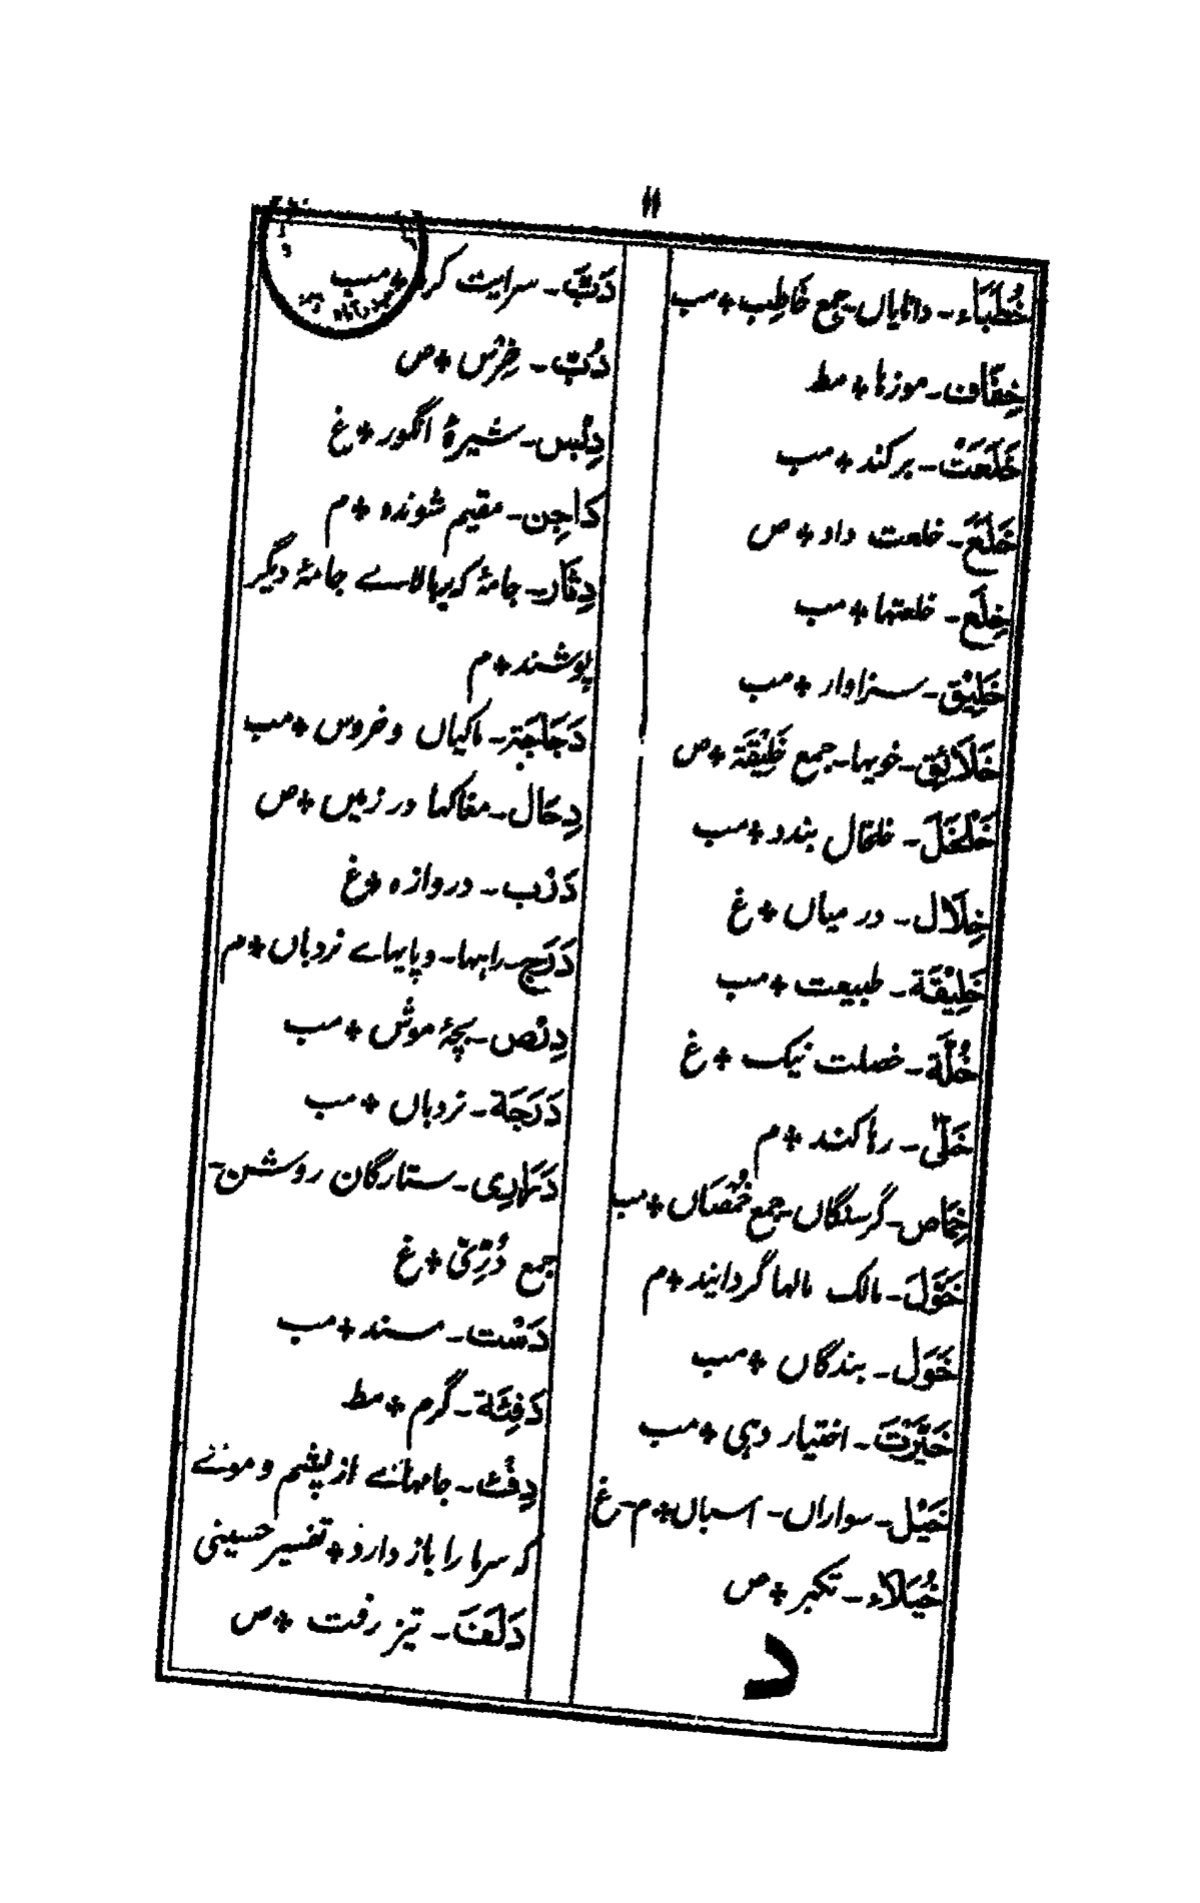 ۱۱
خُطَبَاء۔ دانایاں۔ جمع خَاطِب ÷ مب
خِفَاف۔ موزہا ÷ مط
خَلَعَتْ۔ برکند ÷ مب
خَلَعَ۔ خلعت داد ÷ ص
خِلَع۔ خلعتہا ÷ مب
خَلِیْق۔ سزاوار ÷ مب
خَلَائِق۔ خویہا۔ جمع خَلِیْقَة ÷ ص
خَلْخَلَ۔ خلخال بندد ÷ مب
خِلَال۔ در میاں ÷ غ
خَلِیْقَة۔ طبیعت ÷ مب
خُلَّة۔ خصلت نیک ÷ غ
خَلّٰی۔ رہا کند ÷ م
خِمَاص۔ گرسنگاں۔ جمع خُمْصَاں ÷ مب
خَوَّلَ۔ مالک مالہا گردانیند ÷ م
خَوَل۔ بندگاں ÷ مب
خَیَّرْتَ۔ اختیار دہی ÷ مب
خَیْل۔ سواراں۔ اسباں ÷ م۔ غ
خُیَلَاء۔ تکبر ÷ ص
د
دَبَّ۔ سرایت کرد ÷ مب
دُبّ۔ خِرْس ÷ ص
دِبْس۔ شیرۂ انگور ÷ غ
دَاجِن۔ مقیم شوندہ ÷ م
دِثَار۔ جامۂ کہ بربالاے جامۂ دیگر
پوشند ÷ م
دَجَاجَة۔ ماکیاں و خروس ÷ مب
دِحَال۔ مغاکہا در زمیں ÷ ص
دَرْب۔ دروازہ ÷ غ
دَرَج۔ راہہا۔ و پایہاے نردباں ÷ م
دِرْص۔ بچۂ موش ÷ مب
دَرَجَة۔ نردباں ÷ مب
دَرَارِی۔ ستارگان روشن۔
جمع دُرِّیّ ÷ غ
دَسْت۔ مسند ÷ مب
دَفِئَة۔ گرم ÷ مط
دِفْء۔ جامہائے از پشم و موئے
کہ سرما را باز دارد ÷ تفسیر حسینی
دَلَفَ۔ تیز رفت ÷ ص